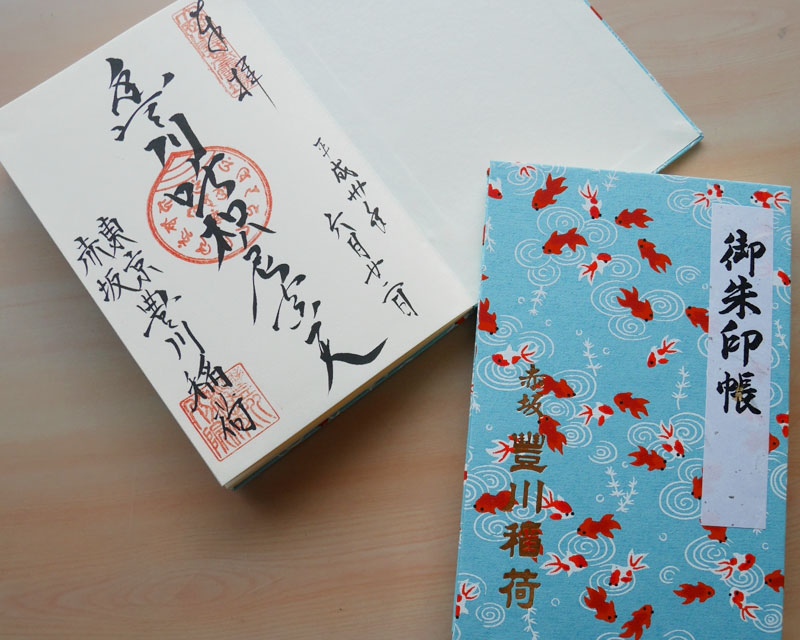 奉拝
豊川吒枳尼眞天
平成卅年
六月廿二日
東京赤坂
豊川稲荷
御朱印帳
赤坂
豐川稲荷